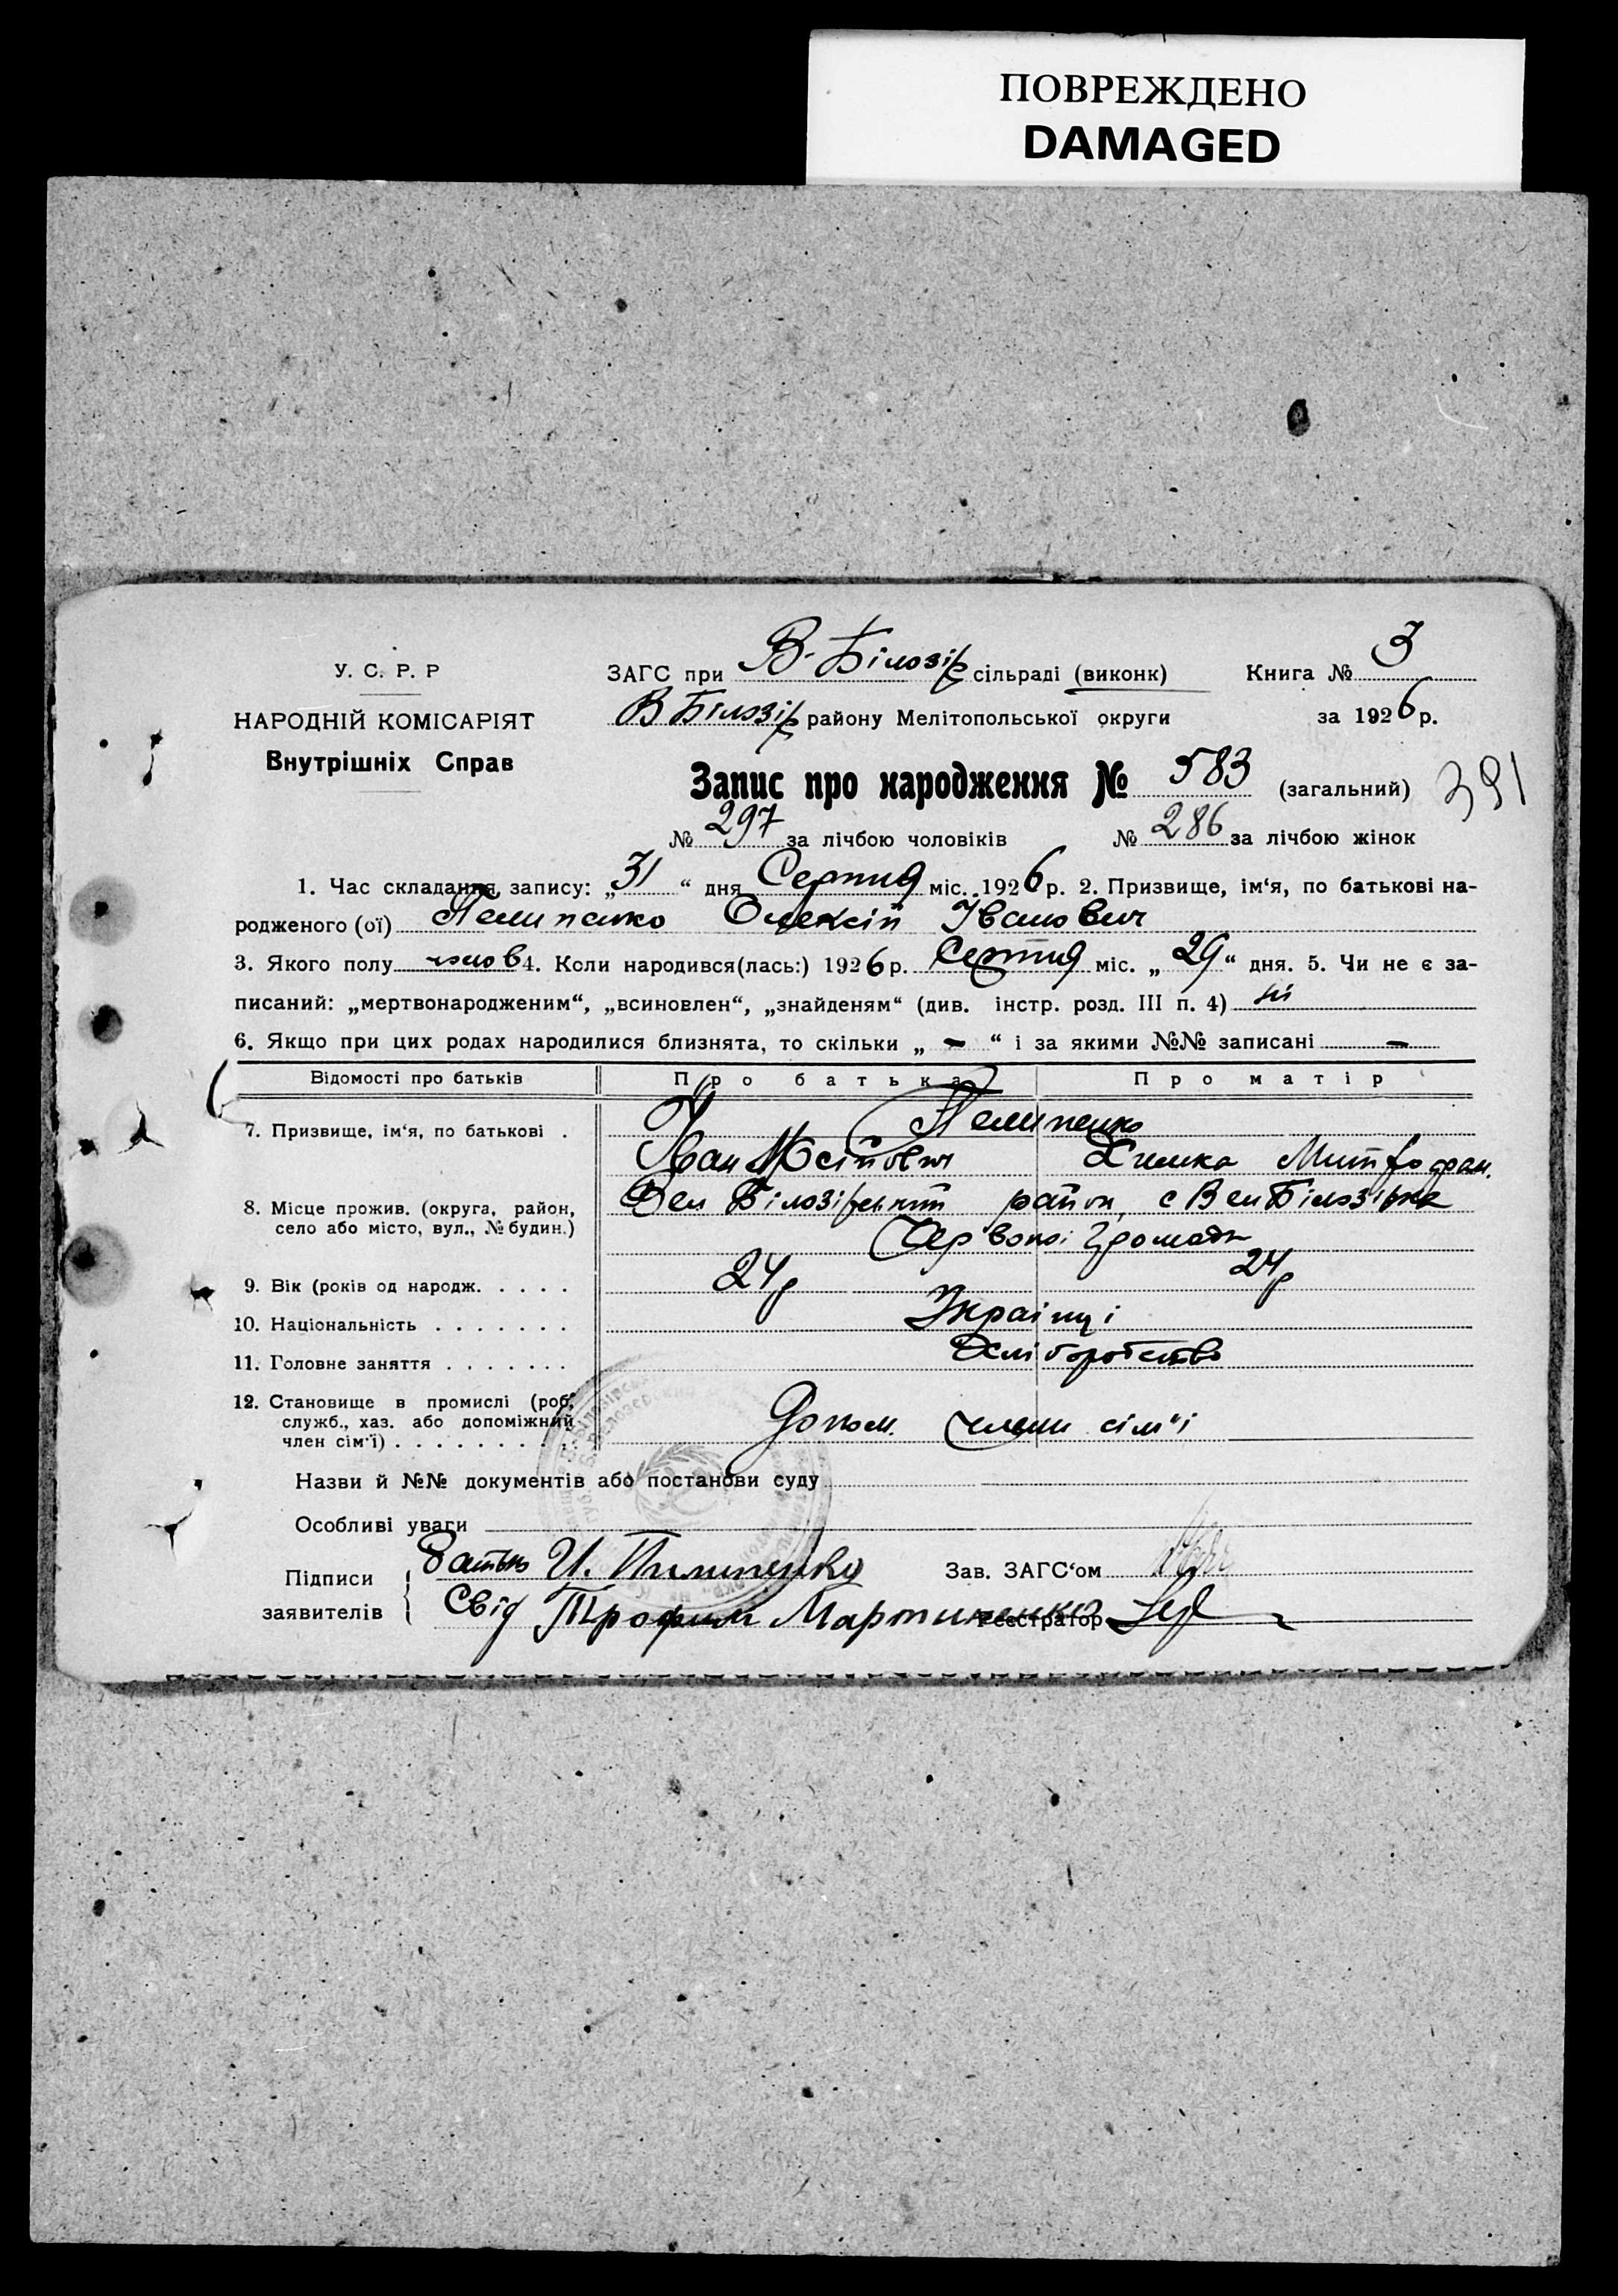 ПОВРЕЖДЕНО
DAMAGED
У. С. Р. Р
НАРОДНІЙ КОМІСАРІЯТ
Внутрішніх Справ
ЗАГС при В-Білозір сільраді (виконк) Книга № 3
В Білозір району Мелітопольської округи за 1926 р.
Запис про народження № 583 (загальний) 391
№ 297 за лічбою чоловіків № 286 за лічбою жінок
1. Час складання запису: „31“ дня Серпня міс. 1926 р. 2. Призвище, ім'я, по батькові на-
родженого (ої) Пелипенко Олексій Іванович
3. Якого полу чолов 4. Коли народився(лась:) 1926 р. Серпня міс. „29“ дня. 5. Чи не є за-
писаний: „мертвонародженим“, „всиновлен“, „знайденям“ (див. інстр. розд. III п. 4) ні
6. Якщо при цих родах народилися близнята, то скільки „-“ і за якими №№ записані -
Відомості про батьків Про батька Про матір
7. Призвище, ім'я, по батькові . Пелипенко
Іван Осіпович Митрофан.
8. Місце прожив. (округа, район, село або місто, вул., № будин.) Вел Білозірський район, с Вел Білозірка
Червоної Громади
9. Вік (років од народж. . . . . 24р 24р
10. Національність . . . . . . . Українці
11. Головне заняття . . . . . . . Хліборобство
12. Становище в промислі (роб.
служб., хаз. або допоміжний
член сім'ї) . . . . . . . . . . Допом. члени сім'ї
Назви й №№ документів або постанови суду
Особливі уваги
Підписи заявителів { Батько И. Пилипенко Зав. ЗАГС'ом
Свід Трофим Мартиненко Реєстратор